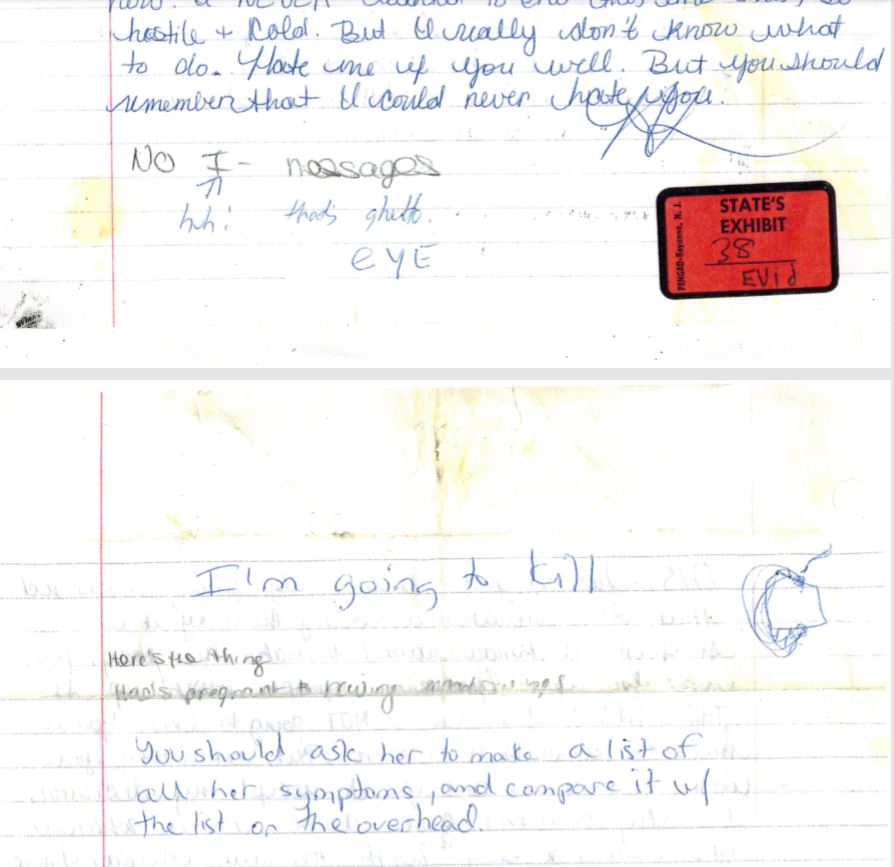 hostile + cold. But I really don't know what
to do. Hate me if you will. But you should
remember that I could never hate you.
No I- messages
huh? that's ghetto.
EYE
STATE'S
EXHIBIT
38
EVid
PENGAD-Bayonne, N. J.
I'm going to kill
Here's the thing
pregnant
You should ask her to make a list of
all her symptoms, and compare it w/
the list on the overhead.